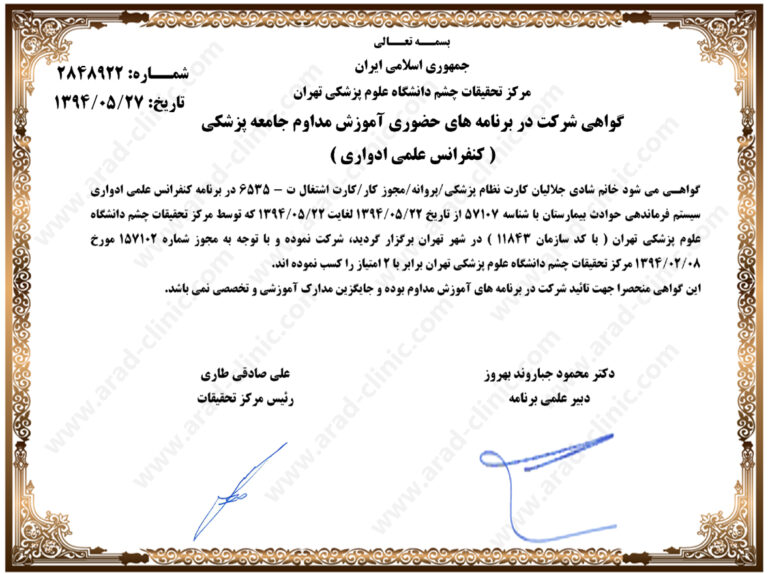 بسمه تعالی
جمهوری اسلامی ایران
مرکز تحقیقات چشم دانشگاه علوم پزشکی تهران
شماره: ۲۸۴۸۹۲۲
تاریخ: ۱۳۹۴/۰۵/۲۷
گواهی شرکت در برنامه های حضوری آموزش مداوم جامعه پزشکی
( کنفرانس علمی ادواری )
گواهی می شود خانم شادی جلالیان کارت نظام پزشکی/پروانه/مجوز کار/کارت اشتغال ت – ۶۵۳۵ در برنامه کنفرانس علمی ادواری
سیستم فرماندهی حوادث بیمارستان با شناسه ۵۷۱۰۷ از تاریخ ۱۳۹۴/۰۵/۲۲ لغایت ۱۳۹۴/۰۵/۲۲ که توسط مرکز تحقیقات چشم دانشگاه
علوم پزشکی تهران ( با کد سازمان ۱۱۸۴۳ ) در شهر تهران برگزار گردید، شرکت نموده و با توجه به مجوز شماره ۱۵۷۱۰۲ مورخ
۱۳۹۴/۰۲/۰۸ مرکز تحقیقات چشم دانشگاه علوم پزشکی تهران برابر با ۲ امتیاز را کسب نموده اند.
این گواهی منحصرا جهت تائید شرکت در برنامه های آموزش مداوم بوده و جایگزین مدارک آموزشی و تخصصی نمی باشد.
دکتر محمود جباروند بهروز
دبیر علمی برنامه
علی صادقی طاری
رئیس مرکز تحقیقات
www.arad-clinic.com